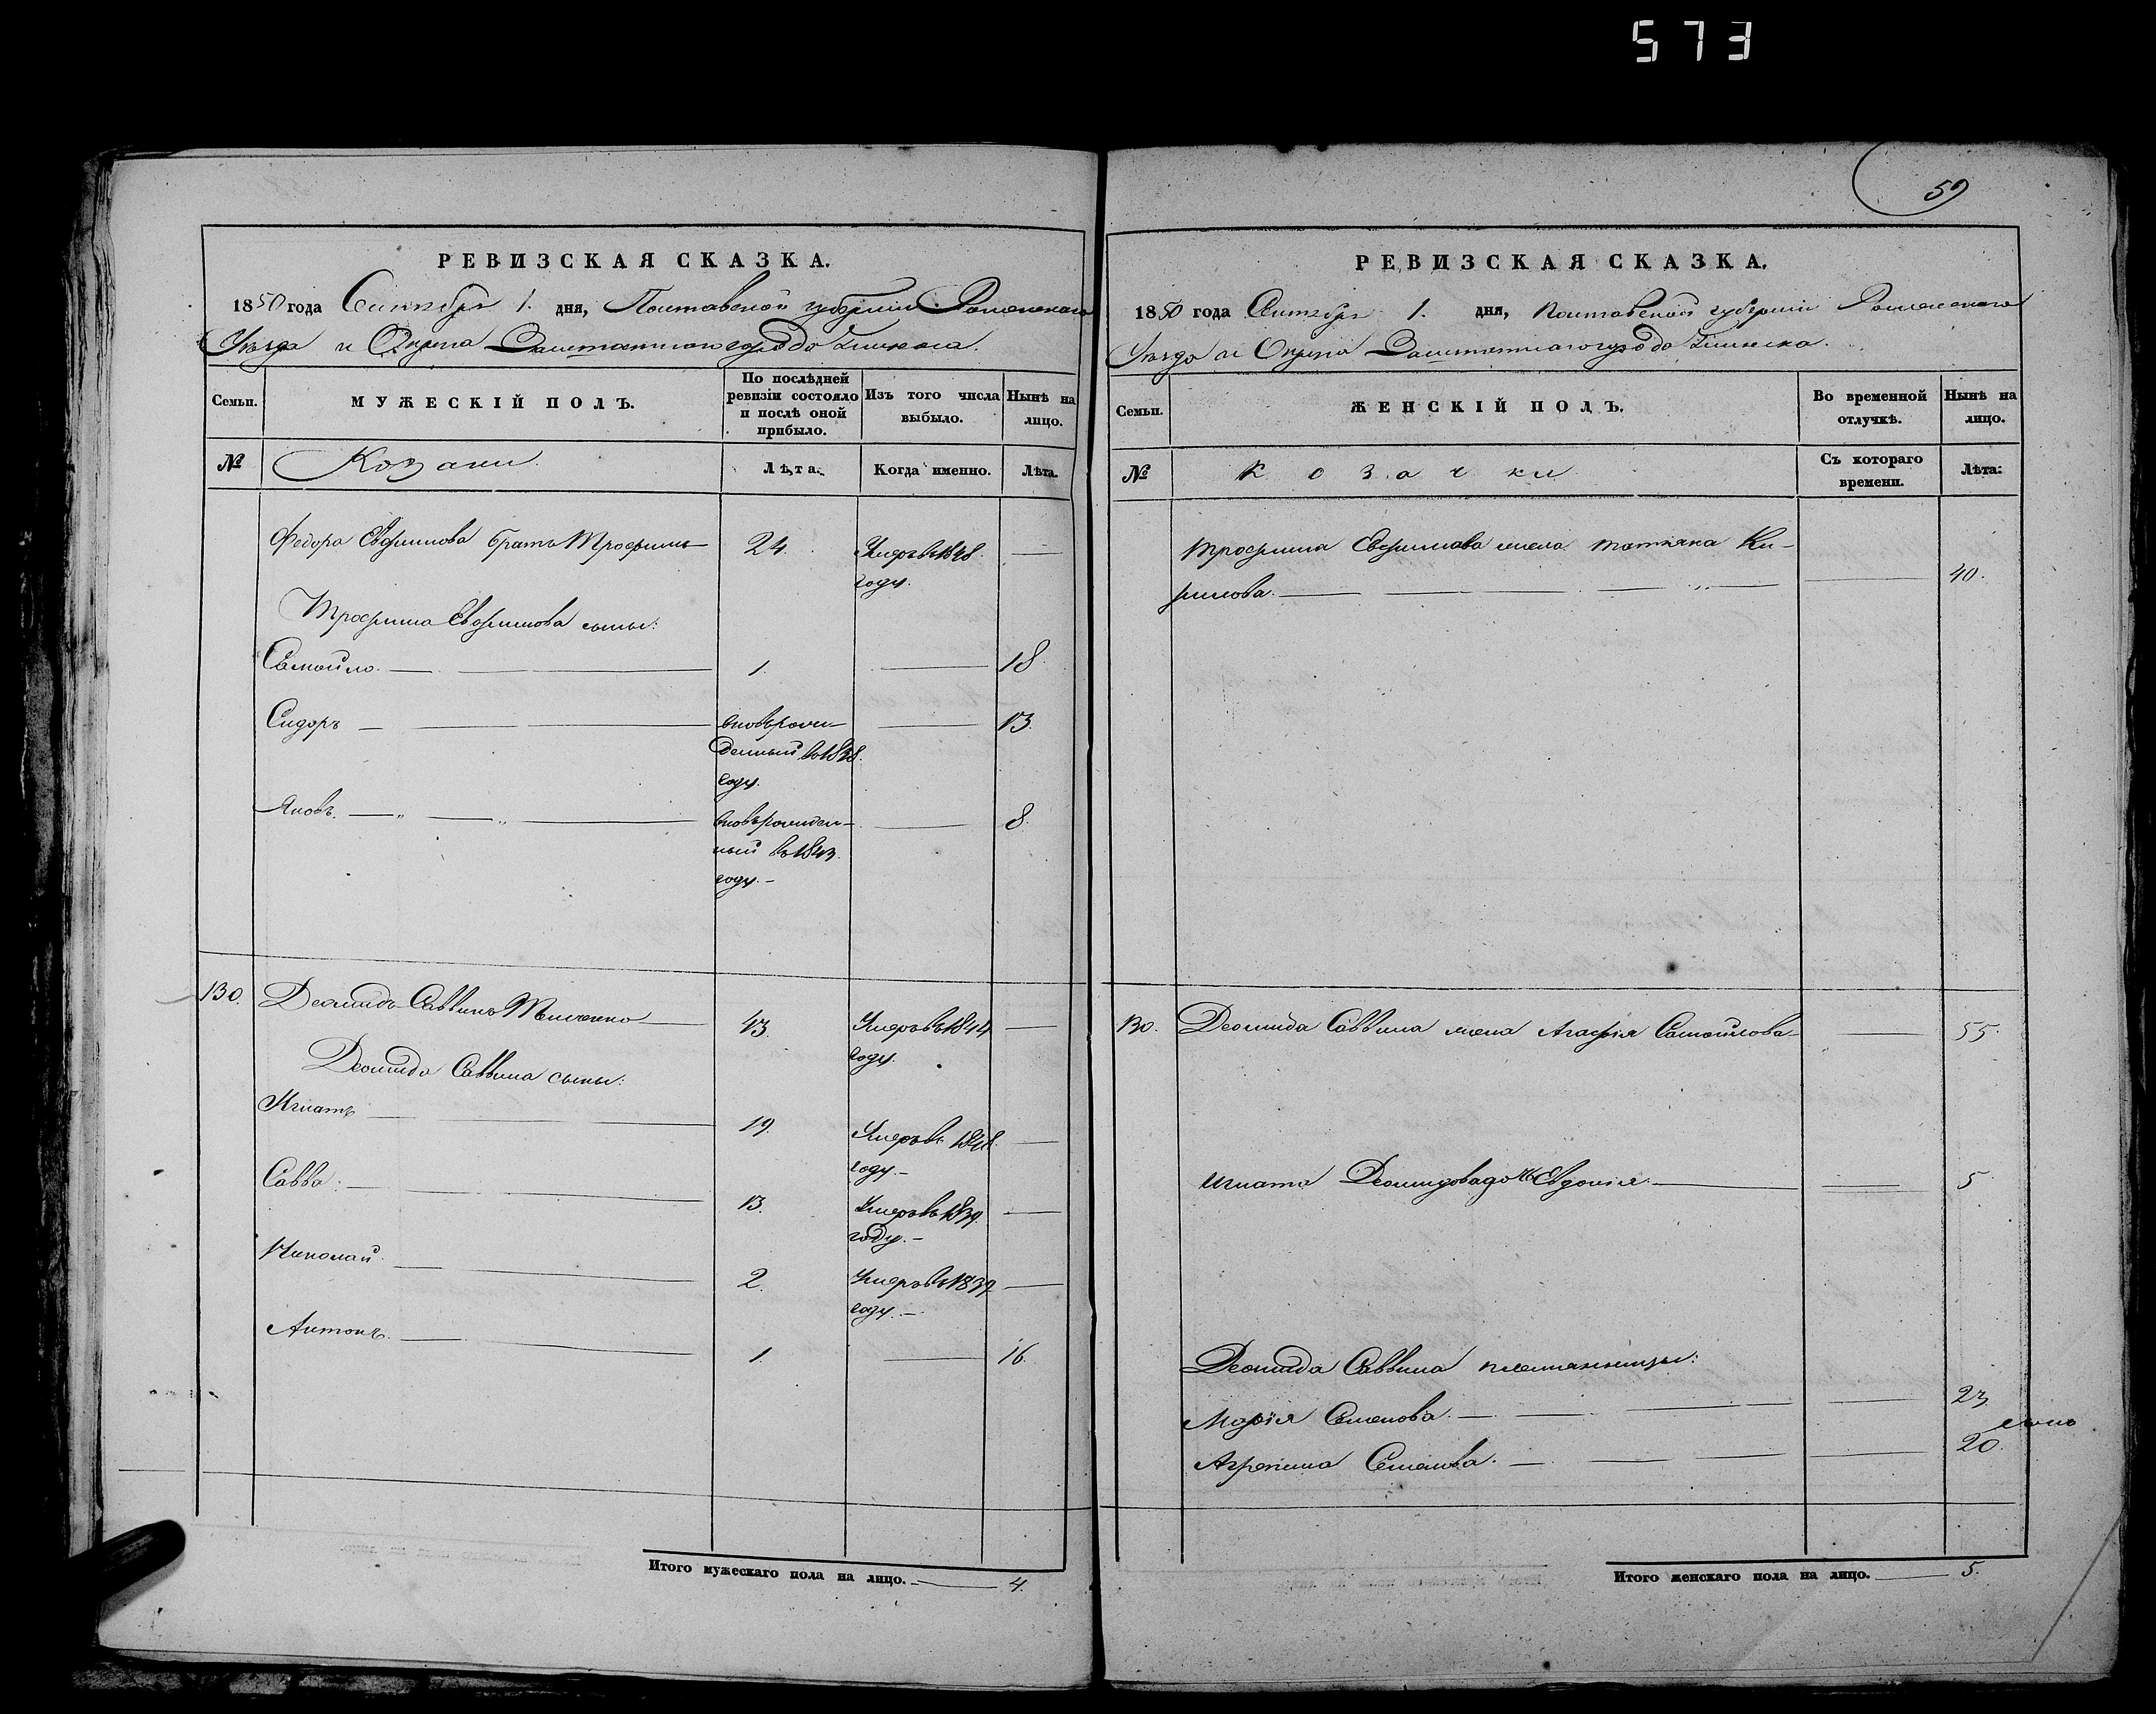 573
59
РЕВИЗСКАЯ СКАЗКА.
1850 года Сентября 1. дня, Полтавской губерніи Роменскаго
Уѣзда и Округа Заштатнаго города Глинска.
Семьи.
МУЖЕСКІЙ ПОЛЪ.
По послѣдней ревизіи состояло и послѣ оной прибыло.
Изъ того числа выбыло.
Нынѣ на лицо.
№
Козаки
Лѣта.
Когда именно.
Лѣта.
Федора Евфимова братъ Трофимъ 24. Умеръ въ 1848. —
году.
Трофима Евфимова сыны:
Самойло. — 1. — 18.
Сидоръ — вновьрож- — 13.
денный въ 1838.
году.
Яковъ. — вновьрожден- — 8.
ный въ 1843.
году. —
130. Деомидъ Саввинъ 43. Умеръ въ 1844 —
году.
Деомида Саввина сыны:
Игнатъ — 19. Умеръ въ 1848. —
году. —
Савва. — 13. Умеръ въ 1839 —
году. —
Николай. — 2. Умеръ въ 1839 —
году. —
Антонъ. — 1. — 16.
Итого мужескаго пола на лицо. — 4.
РЕВИЗСКАЯ СКАЗКА.
1850 года Сентября 1. дня, Полтавской губерніи Роменскаго
Уѣзда и Округа Заштатнаго города Глинска.
Семьи.
ЖЕНСКІЙ ПОЛЪ.
Во временной отлучкѣ.
Нынѣ на лицо.
№
Козачки
Съ котораго времени.
Лѣта:
Трофима Евфимова жена Татьяна Ки-
рилова. — 40.
130. Деомида Саввина жена Агафія Самойлова — 55.
Игната Деомидова дочь Евдокія. — 5
Деомида Саввина племянницы:
Марія Семенова. — 23
Агрепина Семенова. — 20.
Итого женскаго пола на лицо. — 5.